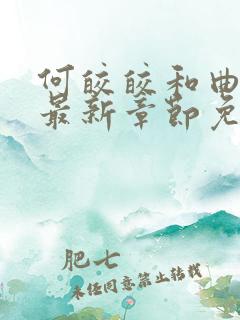 何皎皎和曲
最新章节免
肥七
未经同意禁止转载